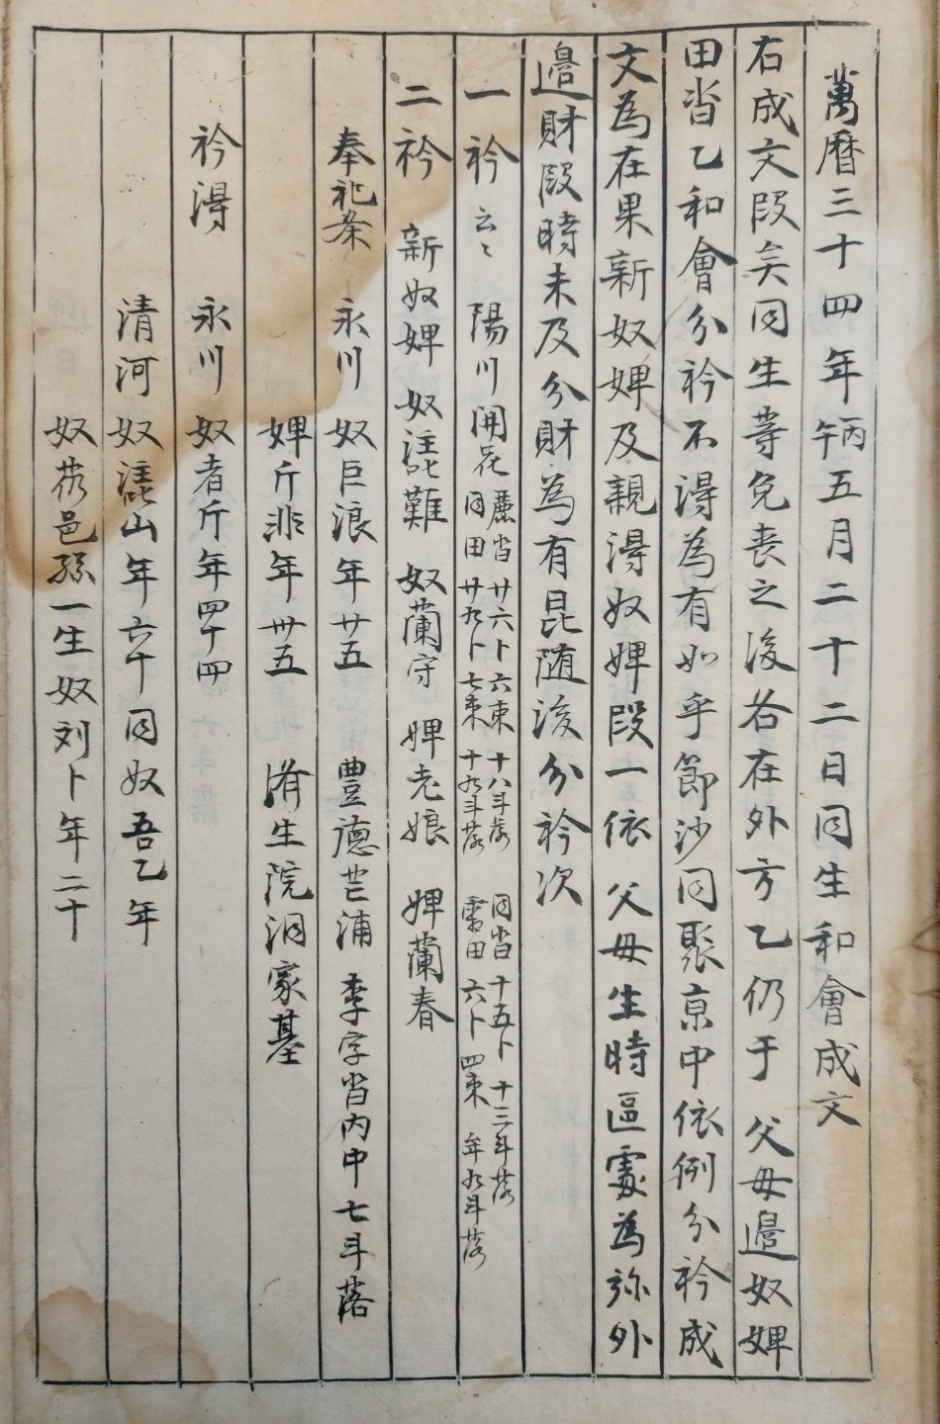 萬曆三十四年丙午五月二十二日同生和會成文
右成文段矣同生等免喪之後各在外方乙仍于 父母邊奴婢
田畓乙和會分衿不得為有如乎節沙同聚京中依例分衿成
文為在果新奴婢及親得奴婢段一依 父母生時區處為旀外
邊財段時未及分財為有昆随後分衿次
一衿 云々 陽川開花 員畓廿六卜六束十八斗落 同田廿九卜七束十九斗落 同畓十五卜十三斗落 田六卜四束 年九斗落
二衿 新奴婢 奴難 奴蘭守 婢老娘 婢蘭春
奉祀条 永川 奴巨浪年廿五 豊德芒浦 李字畓內中七斗落
婢斤非年卅五 濟生院洞家基
衿得 永川 奴者斤年四十四
清河 奴山年六十 同奴吾乙年
奴邑孫一生奴刘卜年二十